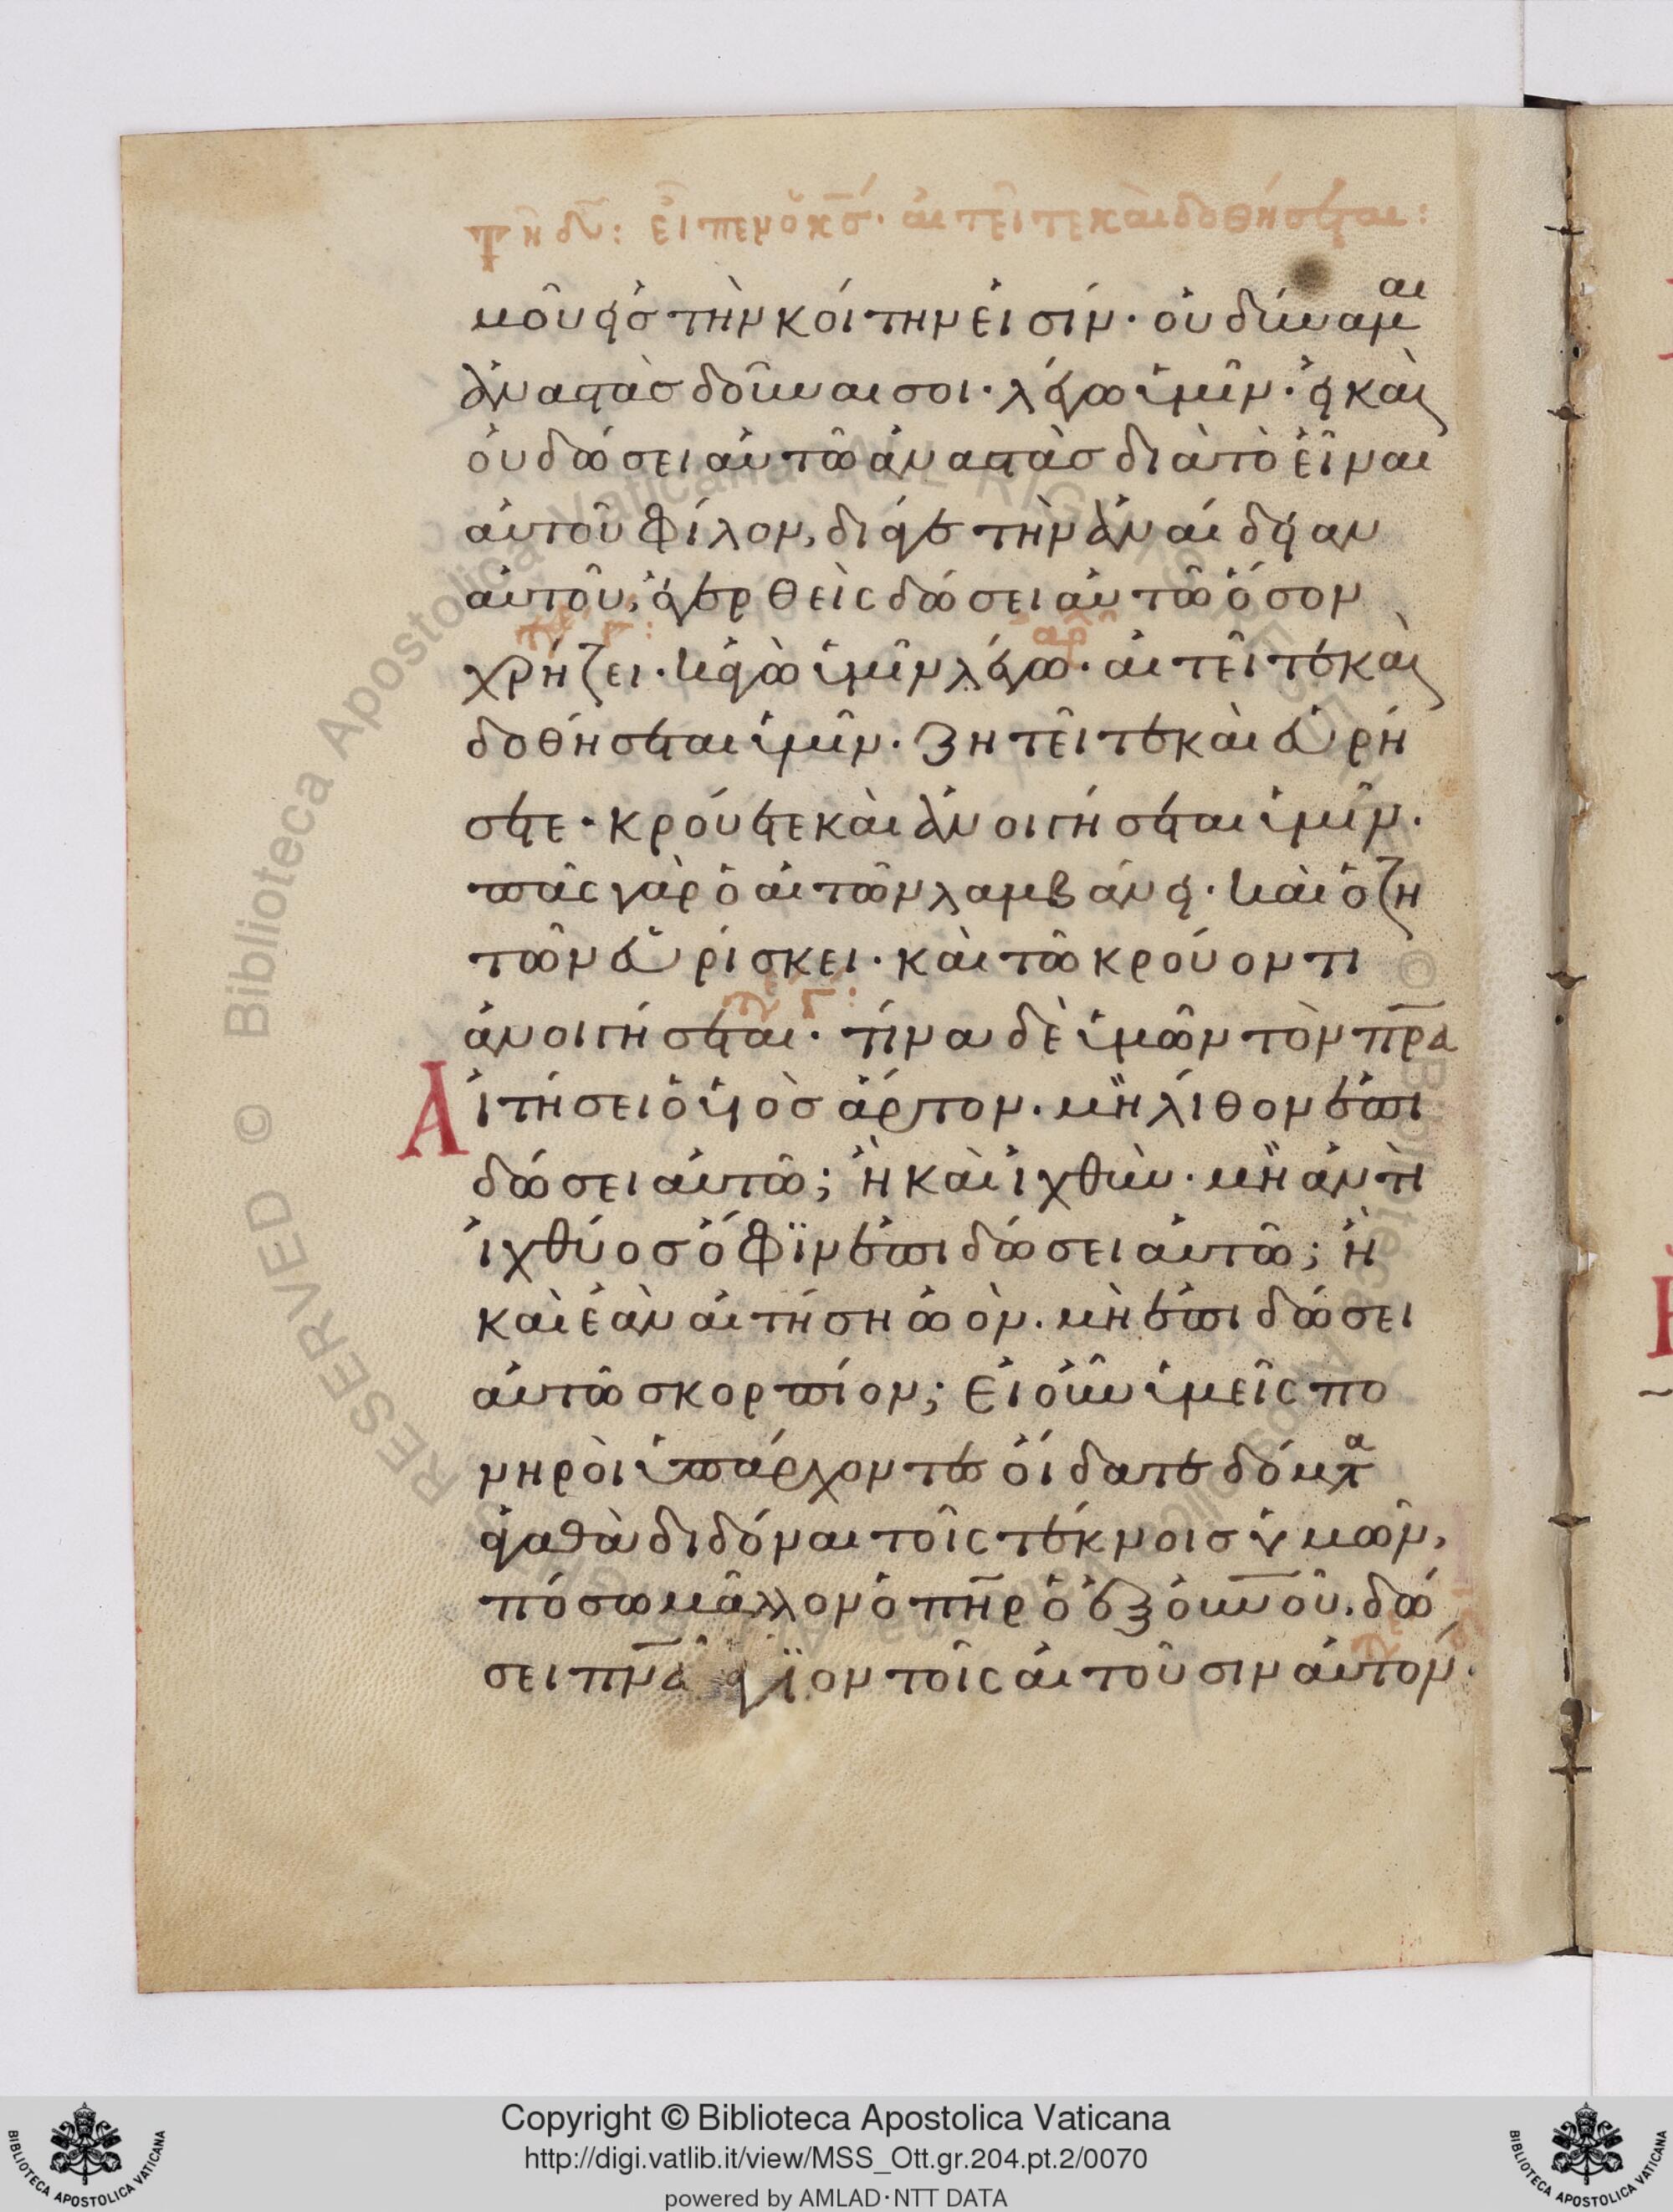 τῆ δ: εἶπεν ὁ κς· αἰτεῖτε καὶ δοθήσεται:
μοῦ εἰς τὴν κοίτην εἰσίν· οὐ δύναμαι
ἀναστὰς δοῦναι σοι· λέγω ὑμῖν· εἰ καὶ
οὐ δώσει αὐτῶ ἀναστὰς διὰ τὸ εἶναι
αὐτοῦ φίλον, διά γε τὴν ἀναίδειαν
αὐτοῦ, ἐγερθεὶς δώσει αὐτῶ ὅσον
χρήζει· κἀγὼ ὑμῖν λέγω· αἰτεῖτε καὶ
δοθήσεται ὑμῖν· ζητεῖτε καὶ εὑρή
σετε· κρούετε καὶ ἀνοιγήσεται ὑμῖν·
πᾶς γὰρ ὁ αἰτῶν λαμβάνει· καὶ ὁ ζη
τῶν εὑρίσκει· καὶ τῶ κρούοντι
ἀνοιγήσεται· τίνα δὲ ὑμῶν τὸν πρα
Αἰτήσει ὁ υἱὸς ἄρτον· μὴ λίθον ἐπι
δώσει αὐτῶ; ἢ καὶ ἰχθὺν· μὴ ἀντὶ
ἰχθύος ὄφϊν ἐπιδώσει αὐτῶ; ἢ
καὶ ἐὰν αἰτήση ὠὸν· μὴ ἐπιδώσει
αὐτῶ σκορπίον; Εἰ οὖν ὑμεῖς πο
νηροὶ ὑπάρχοντες οἴδατε δόματα
ἀγαθὰ διδόναι τοῖς τέκνοις ὑμῶν,
πόσω μᾶλλον ὁ πηρ ὁ ἐξ οὐνοῦ, δώ
σει πνα ἅγϊον τοῖς αἰτοῦσιν αὐτόν·
Copyright © Biblioteca Apostolica Vaticana
http://digi.vatlib.it/view/MSS_Ott.gr.204.pt.2/0070
powered by AMLAD·NTT DATA
BIBLIOTECA APOSTOLICA VATICANA
BIBLIOTECA APOSTOLICA VATICANA